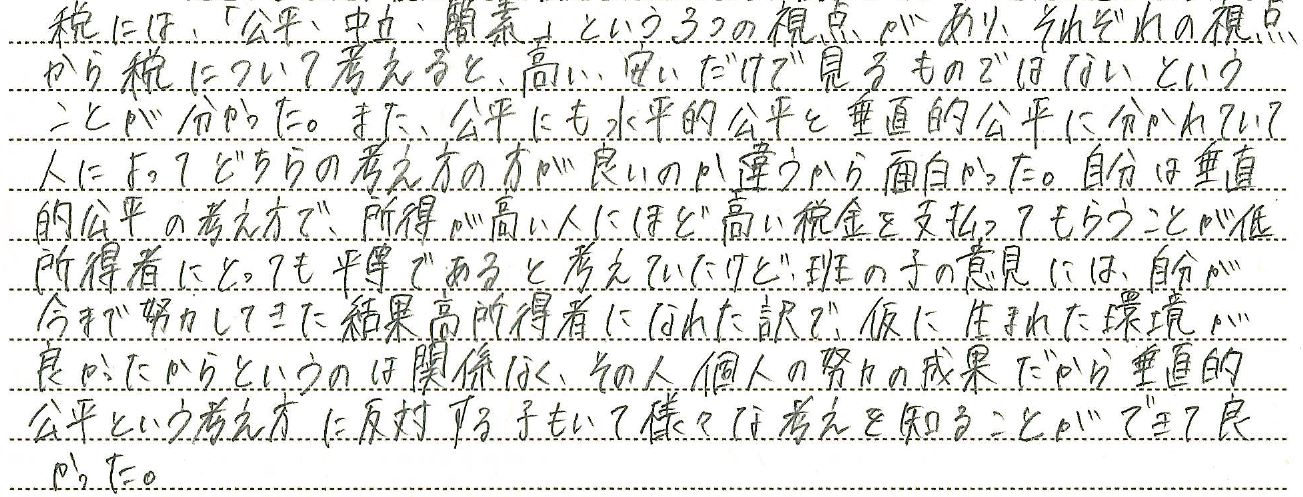 税には、「公平、中立、簡素」という3つの視点があり、それぞれの視点
から税について考えると、高い、安いだけで見るものではないという
ことが分かった。また、公平にも水平的公平と垂直的公平に分かれていて
人によってどちらの考え方の方が良いのか違うから面白かった。自分は垂直
的公平の考え方で、所得が高い人にほど高い税金を支払ってもらうことが低
所得者にとっても平等であると考えていたけど、班の子の意見には、自分が
今まで努力してきた結果高所得者になれた訳で、仮に生まれた環境が
良かったからというのは関係なく、その人個人の努力の成果だから垂直的
公平という考え方に反対する子もいて様々な考えを知ることができて良
かった。